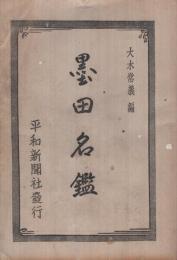 大木常義 編
墨田名鑑
平和新聞社發行